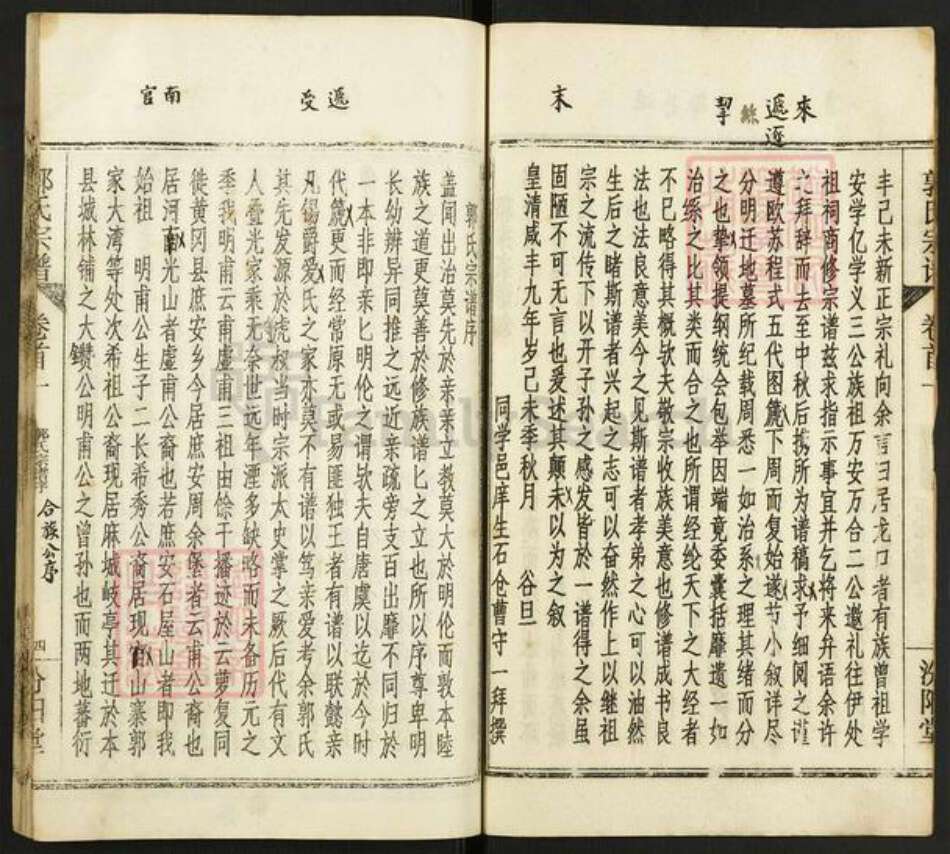 來
遞
近
絲
挈
末
郭氏宗谱
卷首一
汾阳堂
丰己未新正宗礼向余言曰居龙口者有族曾祖学
安学亿学义三公族祖万安万合二公邀礼往伊处
祖祠商修宗谱兹求指示事宜并乞将来弁语余许
之拜辞而去至中秋后携所为谱稿求予细阅之谨
遵欧苏程式五代图篪下周而复始遂芍小叙详尽
分明迁地墓所纪载周悉一如治系之理其绪而分
之也挚领提纲统会包举因端竟委囊括靡遗一如
治综之比其类而合之也所谓经纶天下之大经者
不已略得其概欤夫敬宗收族美意也修谱成书良
法也法良意美今之见斯谱者孝弟之心可以油然
生后之睹斯谱者兴起之志可以奋然作上以继祖
宗之流传下以开子孙之感发皆於一谱得之余虽
固陋不可无言也爰述其颠未以为之叙
皇清咸丰九年岁己未季秋月 谷旦
同学邑庠生石仓曹守一拜撰
遞
受
南
官
郭氏宗谱序
盖闻出治莫先於亲亲立教莫大於明伦而敦本睦
族之道更莫善於修族谱匕之立也所以序尊卑明
长幼辨异同推之远近亲疏旁支百出靡不同归於
一本非即亲匕明伦之谓欤夫自唐虞以迄於今时
代篪更而经常原无或易匪独王者有谱以联懿亲
凡锡爵爱氏之家亦莫不有谱以笃亲爱考余郭氏
其先发源於虎叔当时宗派太史掌之厥后代有文
人叠光家乘无奈世远年湮多缺略而未备历元之
季我明甫云甫虚甫三祖由馀干播迹於云夢复同
徙黄冈县庶安乡今居庶安周余堡者云甫公裔也
居河南光山者虚甫公裔也若庶安石屋山者即我
始祖 明甫公生子二长希秀公裔居现官山寨郭
家大湾等处次希祖公裔现居麻城岐亭其迁於本
县城林铺之大鑚公明甫公之曾孙也而两地蕃衍
郭氏宗谱
卷首一
郭氏宗谱序
合族公序
四
汾阳堂